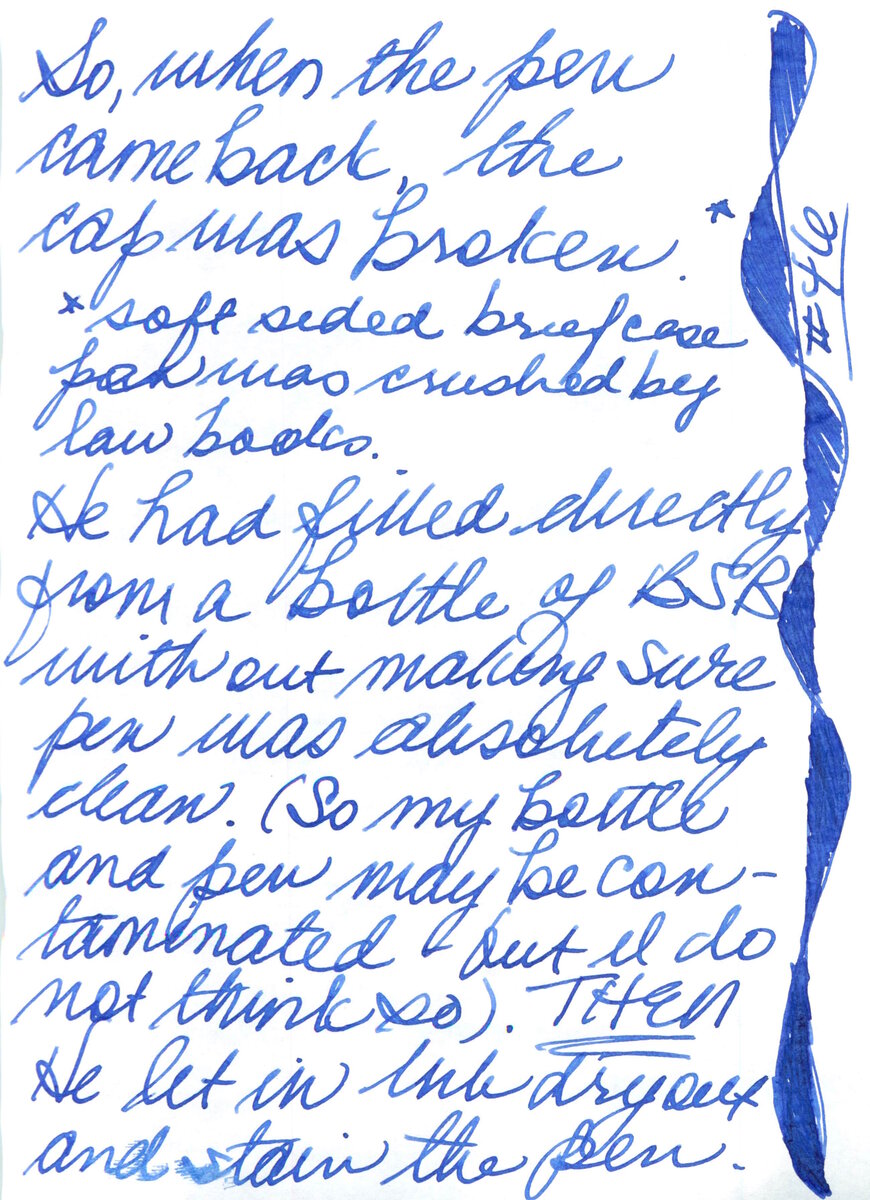 So, when the pen
came back, the
cap was broken.*
*soft sided briefcase
was crushed by
law books.
He had filled directly
from a bottle of BSB
without making sure
pen was absolutely
clean. (So my bottle
and pen may be con-
taminated - but I do
not think so). THEN
He let in ink dry out
and stain the pen.